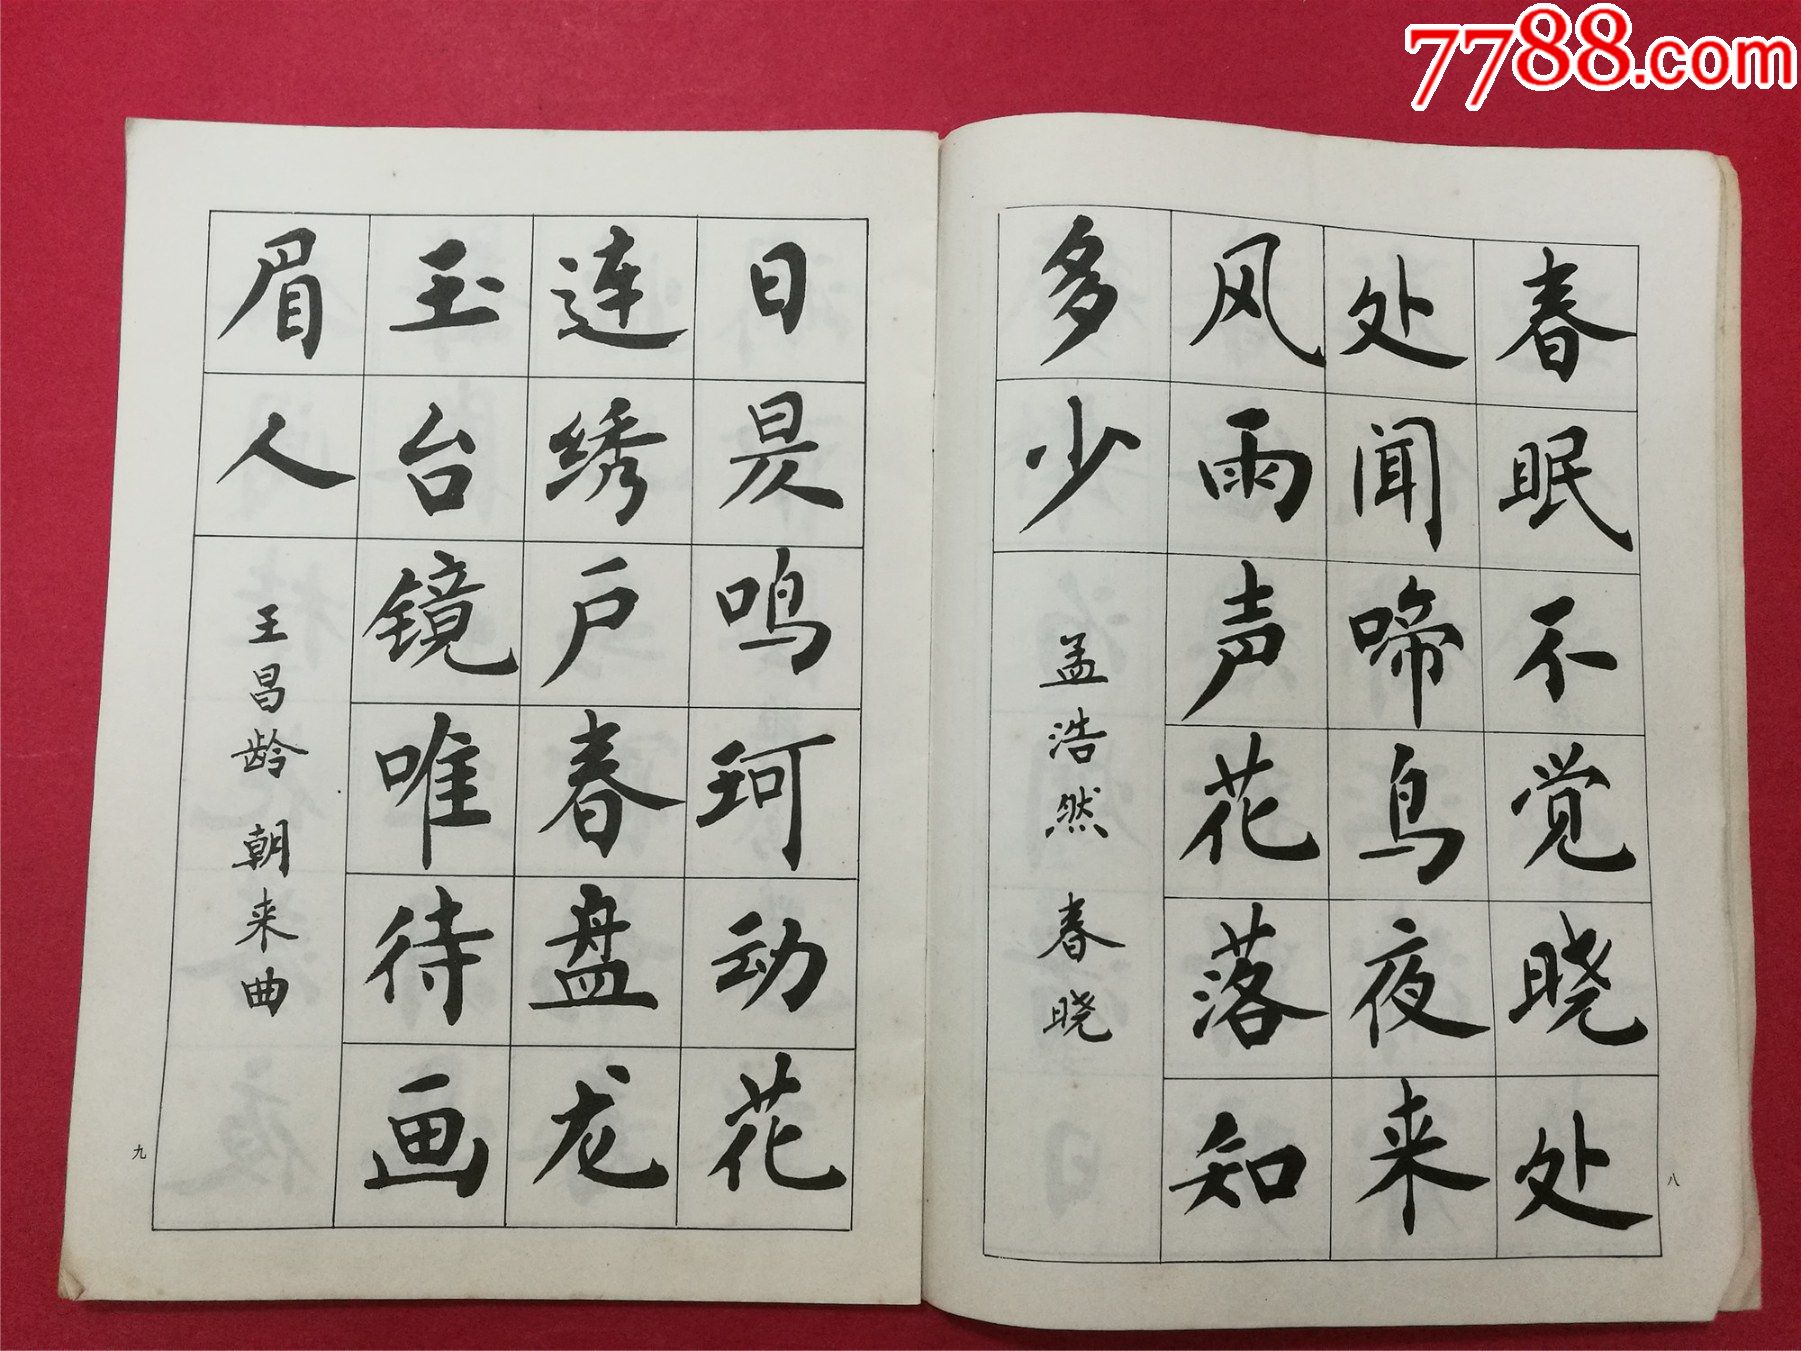 7788.com
春眠不觉晓处
处闻啼鸟夜来
风雨声花落知
多少
孟浩然 春晓
八
日昃鸣珂动花
连绣户春盘龙
玉台镜唯待画
眉人
王昌龄 朝来曲
九